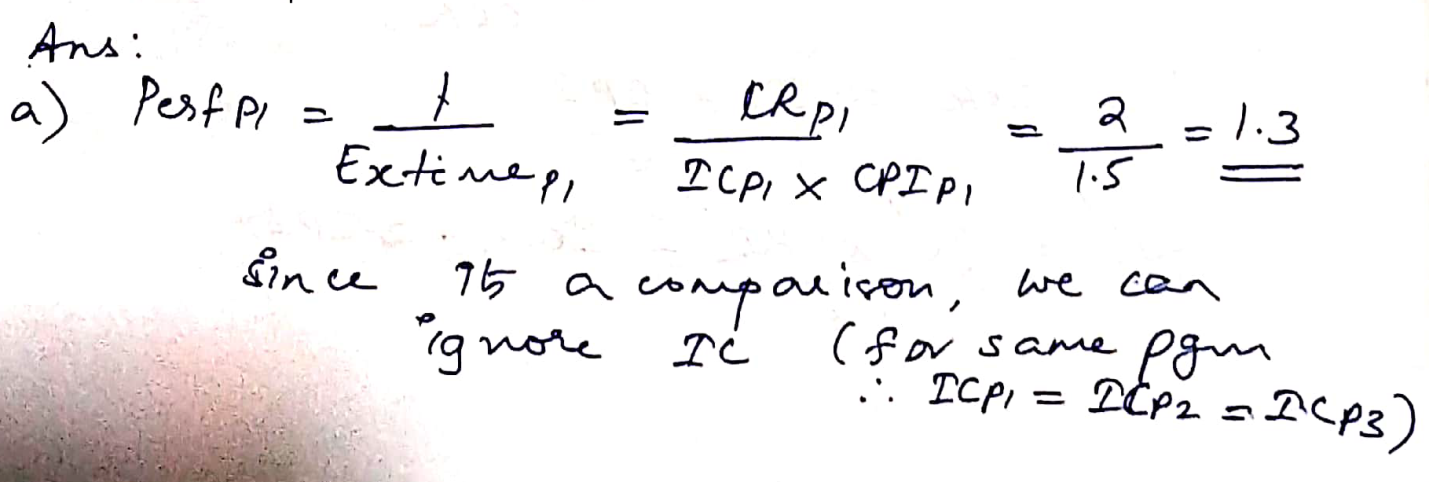 Ans:
a) Perf P1 = 1 / Extime P1 = CR P1 / ICP1 × CPI P1 = 2 / 1.5 = 1.3
Since its a comparison, we can
ignore IC (for same pgm
∴ ICP1 = ICP2 = ICP3)